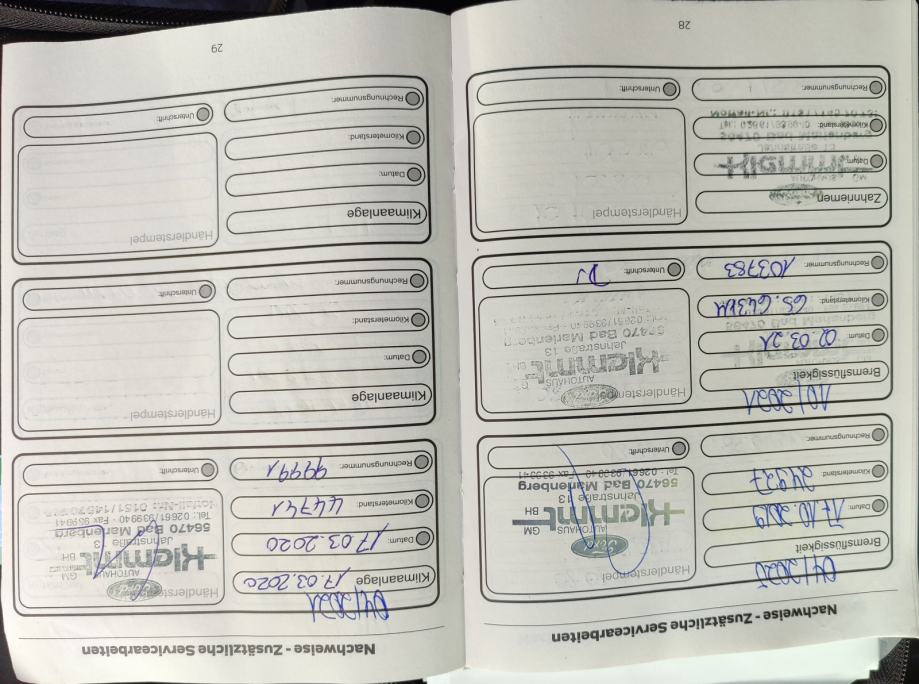 Nachweise - Zusätzliche Servicearbeiten
Bremsflüssigkeit
Datum: 17.10.2019
Kilometerstand: 24927
Rechnungsnummer:
Händlerstempel
Ford
AUTOHAUS GM
Klemmt BH
Jahnstraße 13
56470 Bad Marienberg
Tel.: 02661/939940 - Fax 939941
Unterschrift:
10/2021
Bremsflüssigkeit
Datum: 02.03.21
Kilometerstand: 65.643km
Rechnungsnummer: 103783
Händlerstempel
AUTOHAUS
Klemmt
Jahnstraße 13
56470 Bad Marienberg
Unterschrift:
Zahnriemen
Datum:
Kilometerstand:
Rechnungsnummer:
Klemmt
Jahnstraße 13
56470 Bad Marienberg
Händlerstempel
Unterschrift:
28
Nachweise - Zusätzliche Servicearbeiten
04/2021
Klimaanlage 17.03.2020
Datum: 17.03.2020
Kilometerstand: 44741
Rechnungsnummer: 99991
Händlerstempel
Ford
AUTOHAUS GM
Klemmt BH
Jahnstraße 13
56470 Bad Marienberg
Tel.: 02661/939940 - Fax 939941
Unterschrift:
Klimaanlage
Datum:
Kilometerstand:
Rechnungsnummer:
Händlerstempel
Unterschrift:
Klimaanlage
Datum:
Kilometerstand:
Rechnungsnummer:
Händlerstempel
Unterschrift:
29